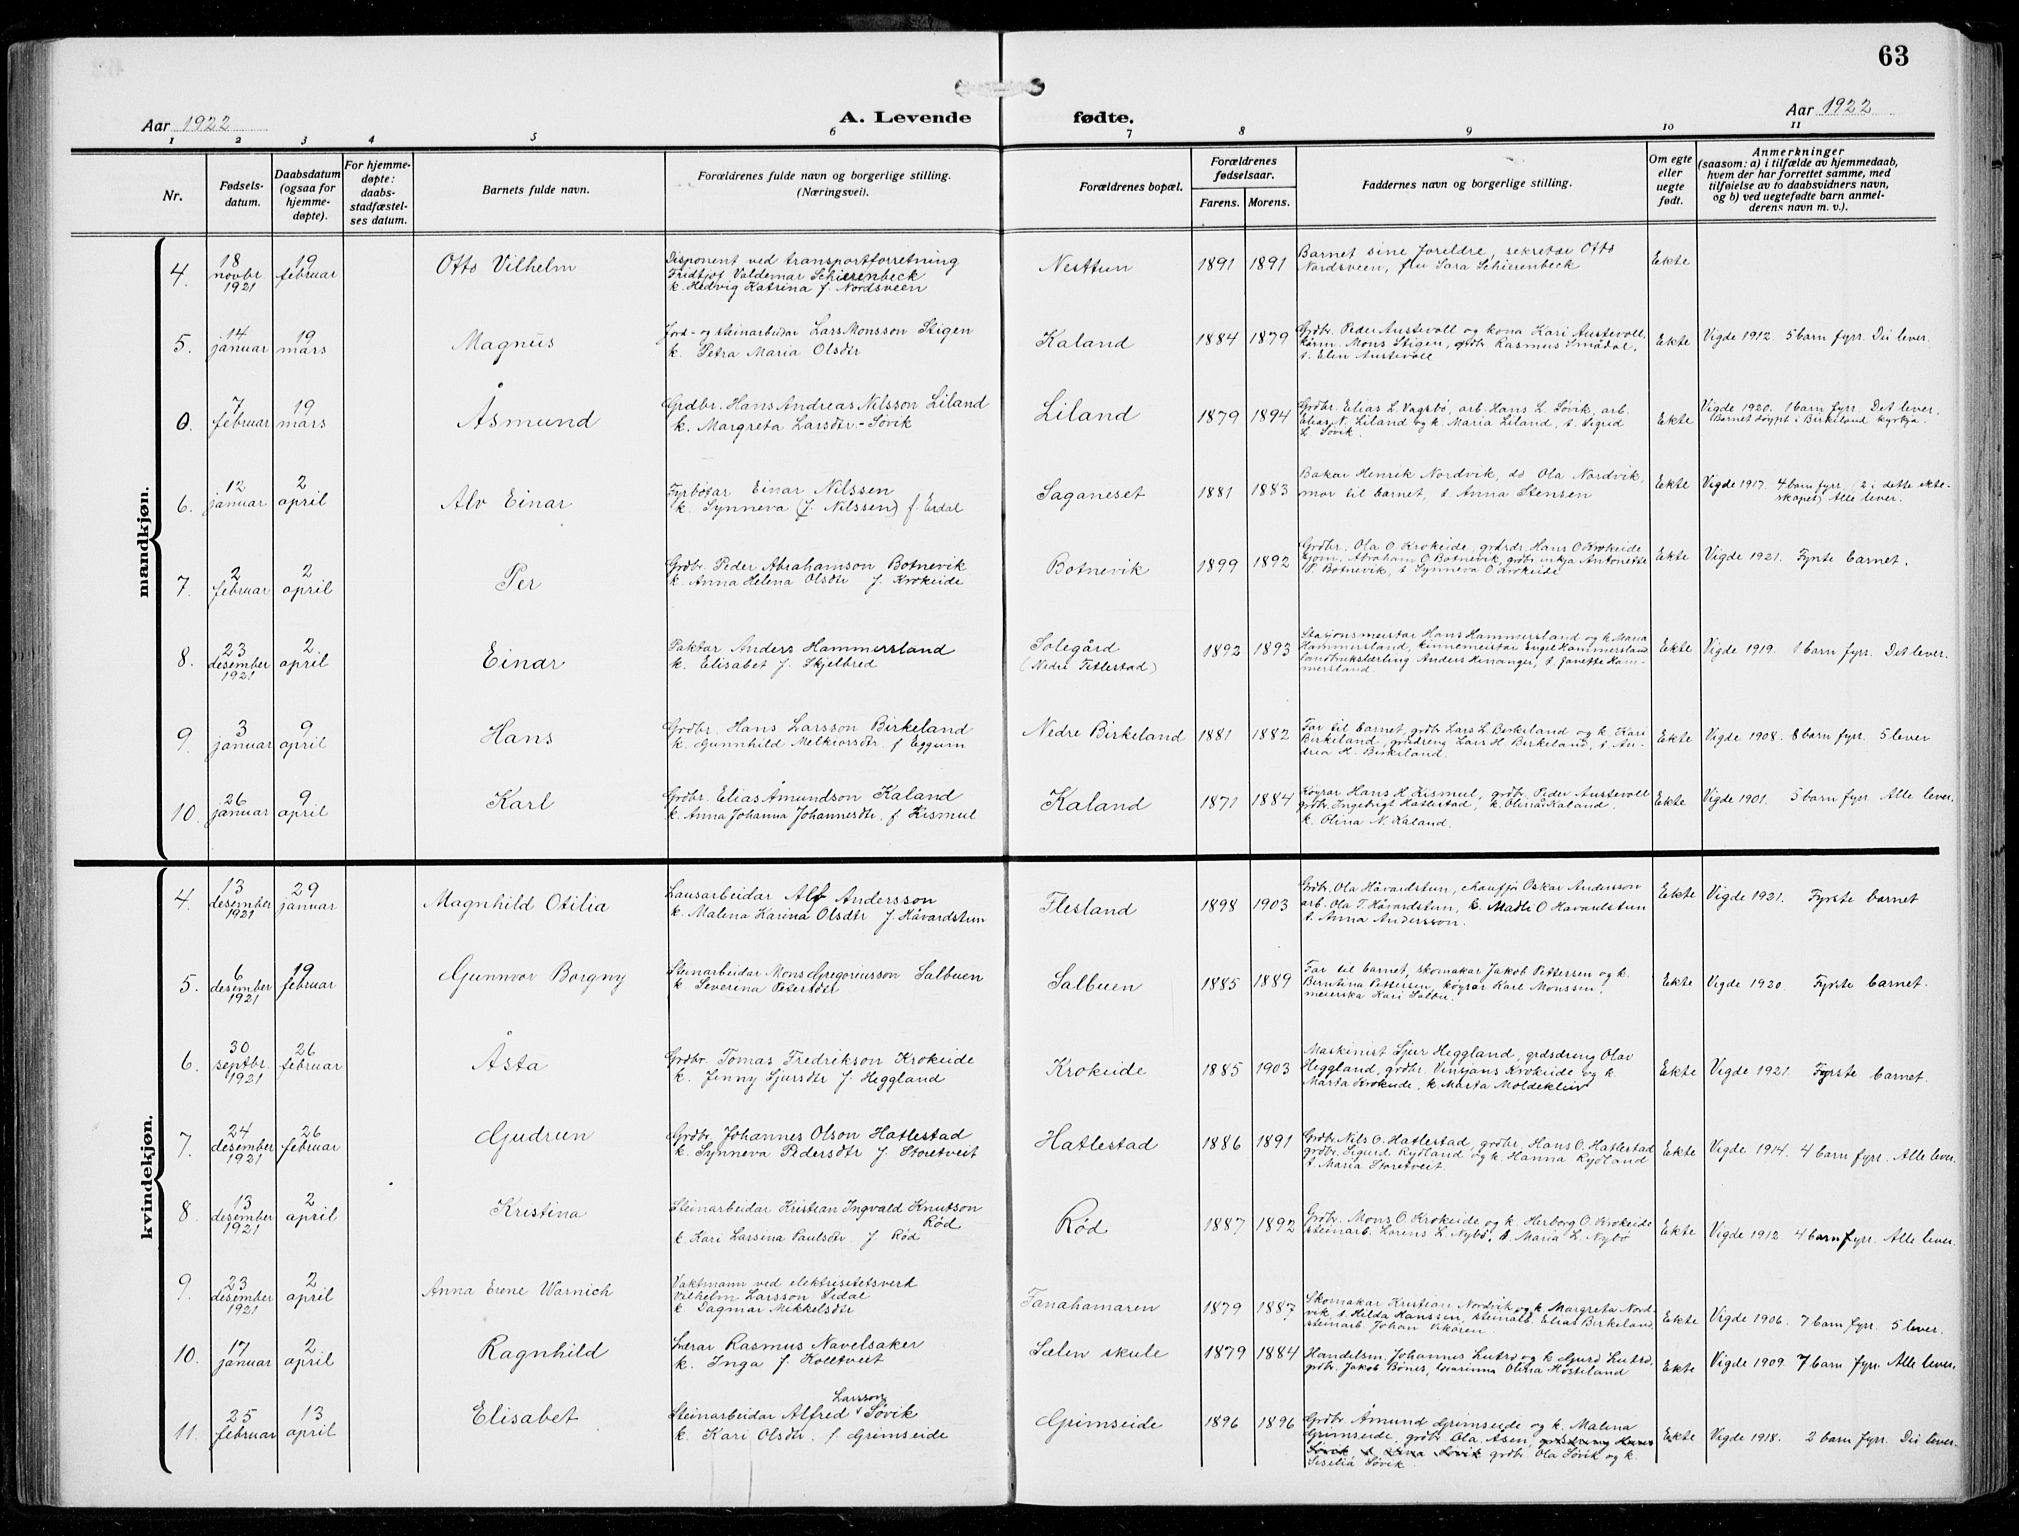 63
Aar 1922
A. Levende
fødte.
Aar 1922
1 2 3 4 5 6 7 8 9 10 11
Nr.
Fødsels-
datum.
Daabsdatum
(ogsaa for
hjemme-
døpte).
For hjemme-
døpte:
daabs-
stadfæstel-
ses datum.
Barnets fulde navn.
Forældrenes fulde navn og borgerlige stilling.
(Næringsvei).
Forældrenes bopæl.
Forældrenes
fødselsaar.
Farens. Morens.
Faddernes navn og borgerlige stilling.
Om egte
eller
uegte
født.
Anmerkninger
(saasom: a) i tilfælde av hjemmedaab,
hvem der har forrettet samme, med
tilføielse av to daabsvidners navn,
og b) ved uegtefødte barn anmel-
derens navn m. v.).
mandkjøn.
4. 18 novbr 1921 19 februar Otto Vilhelm
Disponent ved transportforretning
Fridtjof Valdemar Schierenbeck
k. Hedvig Katrina f. Nordsveen
Nesttun 1891 1891
Barnet sine foreldre, sekretær Otto
Nordsveen, fru Sara Schierenbeck
Ekte
5. 14 januar 19 mars Magnus
Jord- og steinarbeidar Lars Monsson Stigen
k. Petra Maria Olsdtr
Kaland 1884 1879
Grdbr. Peder Austevoll og kona Kari Austevoll,
Mons Stigen, grdbr Rasmus Smådal,
t. Elen Austevoll
Ekte Vigde 1912. 5 barn fyrr. Dei lever.
0. 7 februar 19 mars Åsmund
Grdbr. Hans Andreas Nilsson Liland
k. Margreta Larsdtr - Søvik
Liland 1879 1894
Grdbr. Elias L. Vagsbø, arb. Hans L. Søvik, arb.
Elias N. Liland og k. Maria Liland, t. Sigrid
L. Søvik.
Ekte Vigde 1920. 1 barn fyrr. Det lever.
Barnet døypt i Birkeland kyrkja.
6. 12 januar 2 april Alv Einar
Fyrbøtar Einar Nilssen
k. Synneva (f. Nilssen) f. Erdal
Saganeset 1881 1883
Bakar Henrik Nordvik, do Ola Nordvik,
mor til barnet, t. Anna Stensen
Ekte Vigde 1917. 4 barn fyrr, (2 i dette ekte-
skapet) Alle lever.
7. 2 februar 2 april Per
Grdbr. Peder Abrahamson Botnevik
k. Anna Helena Olsdtr f. Krokeide
Botnevik 1899 1892
Grdbr. Ola O. Krokeide, grdsdr. Hans O Krokeide
Abraham O Botnevik, grdbr. enkja Antonette
P. Botnevik, t. Synneva O Krokeide
Ekte Vigde 1921. Fyrste barnet.
8. 23 desember 1921 2 april Einar
Faktor Anders Hammersland
k. Elisabet f. Skjelbred
Solegård
(Nedre Titlestad)
1892 1893
Stasjonsmeistar Hans Hammersland og k. Maria
Hammersland, kinnemeistar Engel Hammersland
Anders Henanger, t. Janette Ham-
mersland.
Ekte Vigde 1919. 1 barn fyrr. Det lever.
9. 3 januar 9 april Hans
Grdbr. Hans Larsson Birkeland
k. Gunnhild Melkiorsdtr. f. Eggum
Nedre Birkeland 1881 1882
Far til barnet, grdbr Lars L Birkeland og k. Kari
Birkeland, grdsdreng Lars H Birkeland, t. An-
drea H. Birkeland.
Ekte Vigde 1908. 8 barn fyrr. 5 lever
10. 26 januar 9 april Karl
Grdbr. Elias Åmundson Kaland
k. Anna Johanna Johannesdtr. f Kismul
Kaland 1871 1884
Køyrar Hans H. Kismul, grdbr. Peder Austevoll
grdbr. Ingebrigt Hatlestad, k. Olina Kaland.
k. Olina N. Kaland.
Ekte Vigde 1901. 5 barn fyrr. Alle lever.
kvindekjøn.
4. 13 desember 1921 29 januar Magnhild Otilia
Lausarbeidar Alf Andersson
k. Malena Karina Olsdtr f. Håvardstun
Flesland 1898 1903
Grdbr. Ola Håvardstun, chauffør Oskar Andersson
arb. Ola T. Håvardstun, k. Madli O Havardstun
t. Anna Andersson.
Ekte Vigde 1921. Fyrste barnet
5. 6 desember 1921 19 februar Gunnvor Borgny
Steinarbeidar Mons Gregoriusson Salbuen
k. Severina Petersdtr
Salbuen 1885 1889
Far til barnet, skomakar Jakob Pettersen og k.
Berntina Pettersen, køyrar Karl Monssen,
meierska Kari Salbu.
Ekte Vigde 1920. Fyrste barnet.
6. 30 septbr. 1921 26 februar Åsta
Grdbr. Tomas Fredrikson Krokeide
k. Jenny Sjursdtr f. Heggland
Krokeide 1885 1903
Maskinist Sjur Heggland, grdsdreng Olav
Heggland, grdbr. Vinjans Krokeide og k.
Marta Krokeide, k Marta Moldekleiv
Ekte Vigde 1921. Fyrste barnet.
7. 24 desember 1921 26 februar Gudrun
Grdbr. Johannes Olson Hatlestad
k. Synneva Pedersdtr f. Storetveit
Hatlestad 1886 1891
Grdbr. Nils O. Hatlestad, grdbr. Hans O. Hatlestad
grdbr. Sigurd Rydland og k. Hanna Rydland
t. Maria Storetveit.
Ekte Vigde 1914. 4 barn fyrr. Alle lever.
8. 13 desember 1921 2 april Kristina
Steinarbeidar Kristian Ingvald Knutson
Rød
k. Kari Larsina Paulsdtr f Rød
Rød 1887 1892
Grdbr. Mons O. Krokeide og k. Herborg O. Krokeide
steinarb. Lorens L. Nybø, t. Maria L. Nybø
Ekte Vigde 1912. 4 barn fyrr. Alle lever.
9. 23 desember 1921 2 april Anna Erene Warnich
Vaktmann ved elektrisitetsverk
Vilhelm Larsson Sidal
k Dagmar Mikkelsdtr
Fanahamaren 1879 1887
Skomakar Kristian Nordvik og k. Margreta Nord-
vik, t. Hilda Hanssen, steinarb. Elias Birkeland,
steinarb. Johan Vikøren.
Ekte Vigde 1906. 7 barn fyrr. 5 lever.
10. 17 januar 2 april Ragnhild
Lærar Rasmus Navelsaker
k. Inga f. Kolltveit
Sælen skule 1879 1884
Handelsm. Johannes Lutro og k Gjurd Lutro,
grdbr. Jakob Bønes, lærarinna Olina Høsteland
Ekte Vigde 1909. 7 barn fyrr. Alle lever.
11. 25 februar 13 april Elisabet
Larsson
Steinarbeidar Alfred Søvik
k. Kari Olsdtr. f Grimseide
Grimseide 1896 1896
Grdbr. Åmund Grimseide og k. Malena
Grimseide, grdbr. Ola Åsen, grdsdreng Hans
Søvik t. Lina Søvik grdbr. Ola Søvik og k.
Seselia Søvik.
Ekte Vigde 1918. 2 barn fyrr. Dei lever.